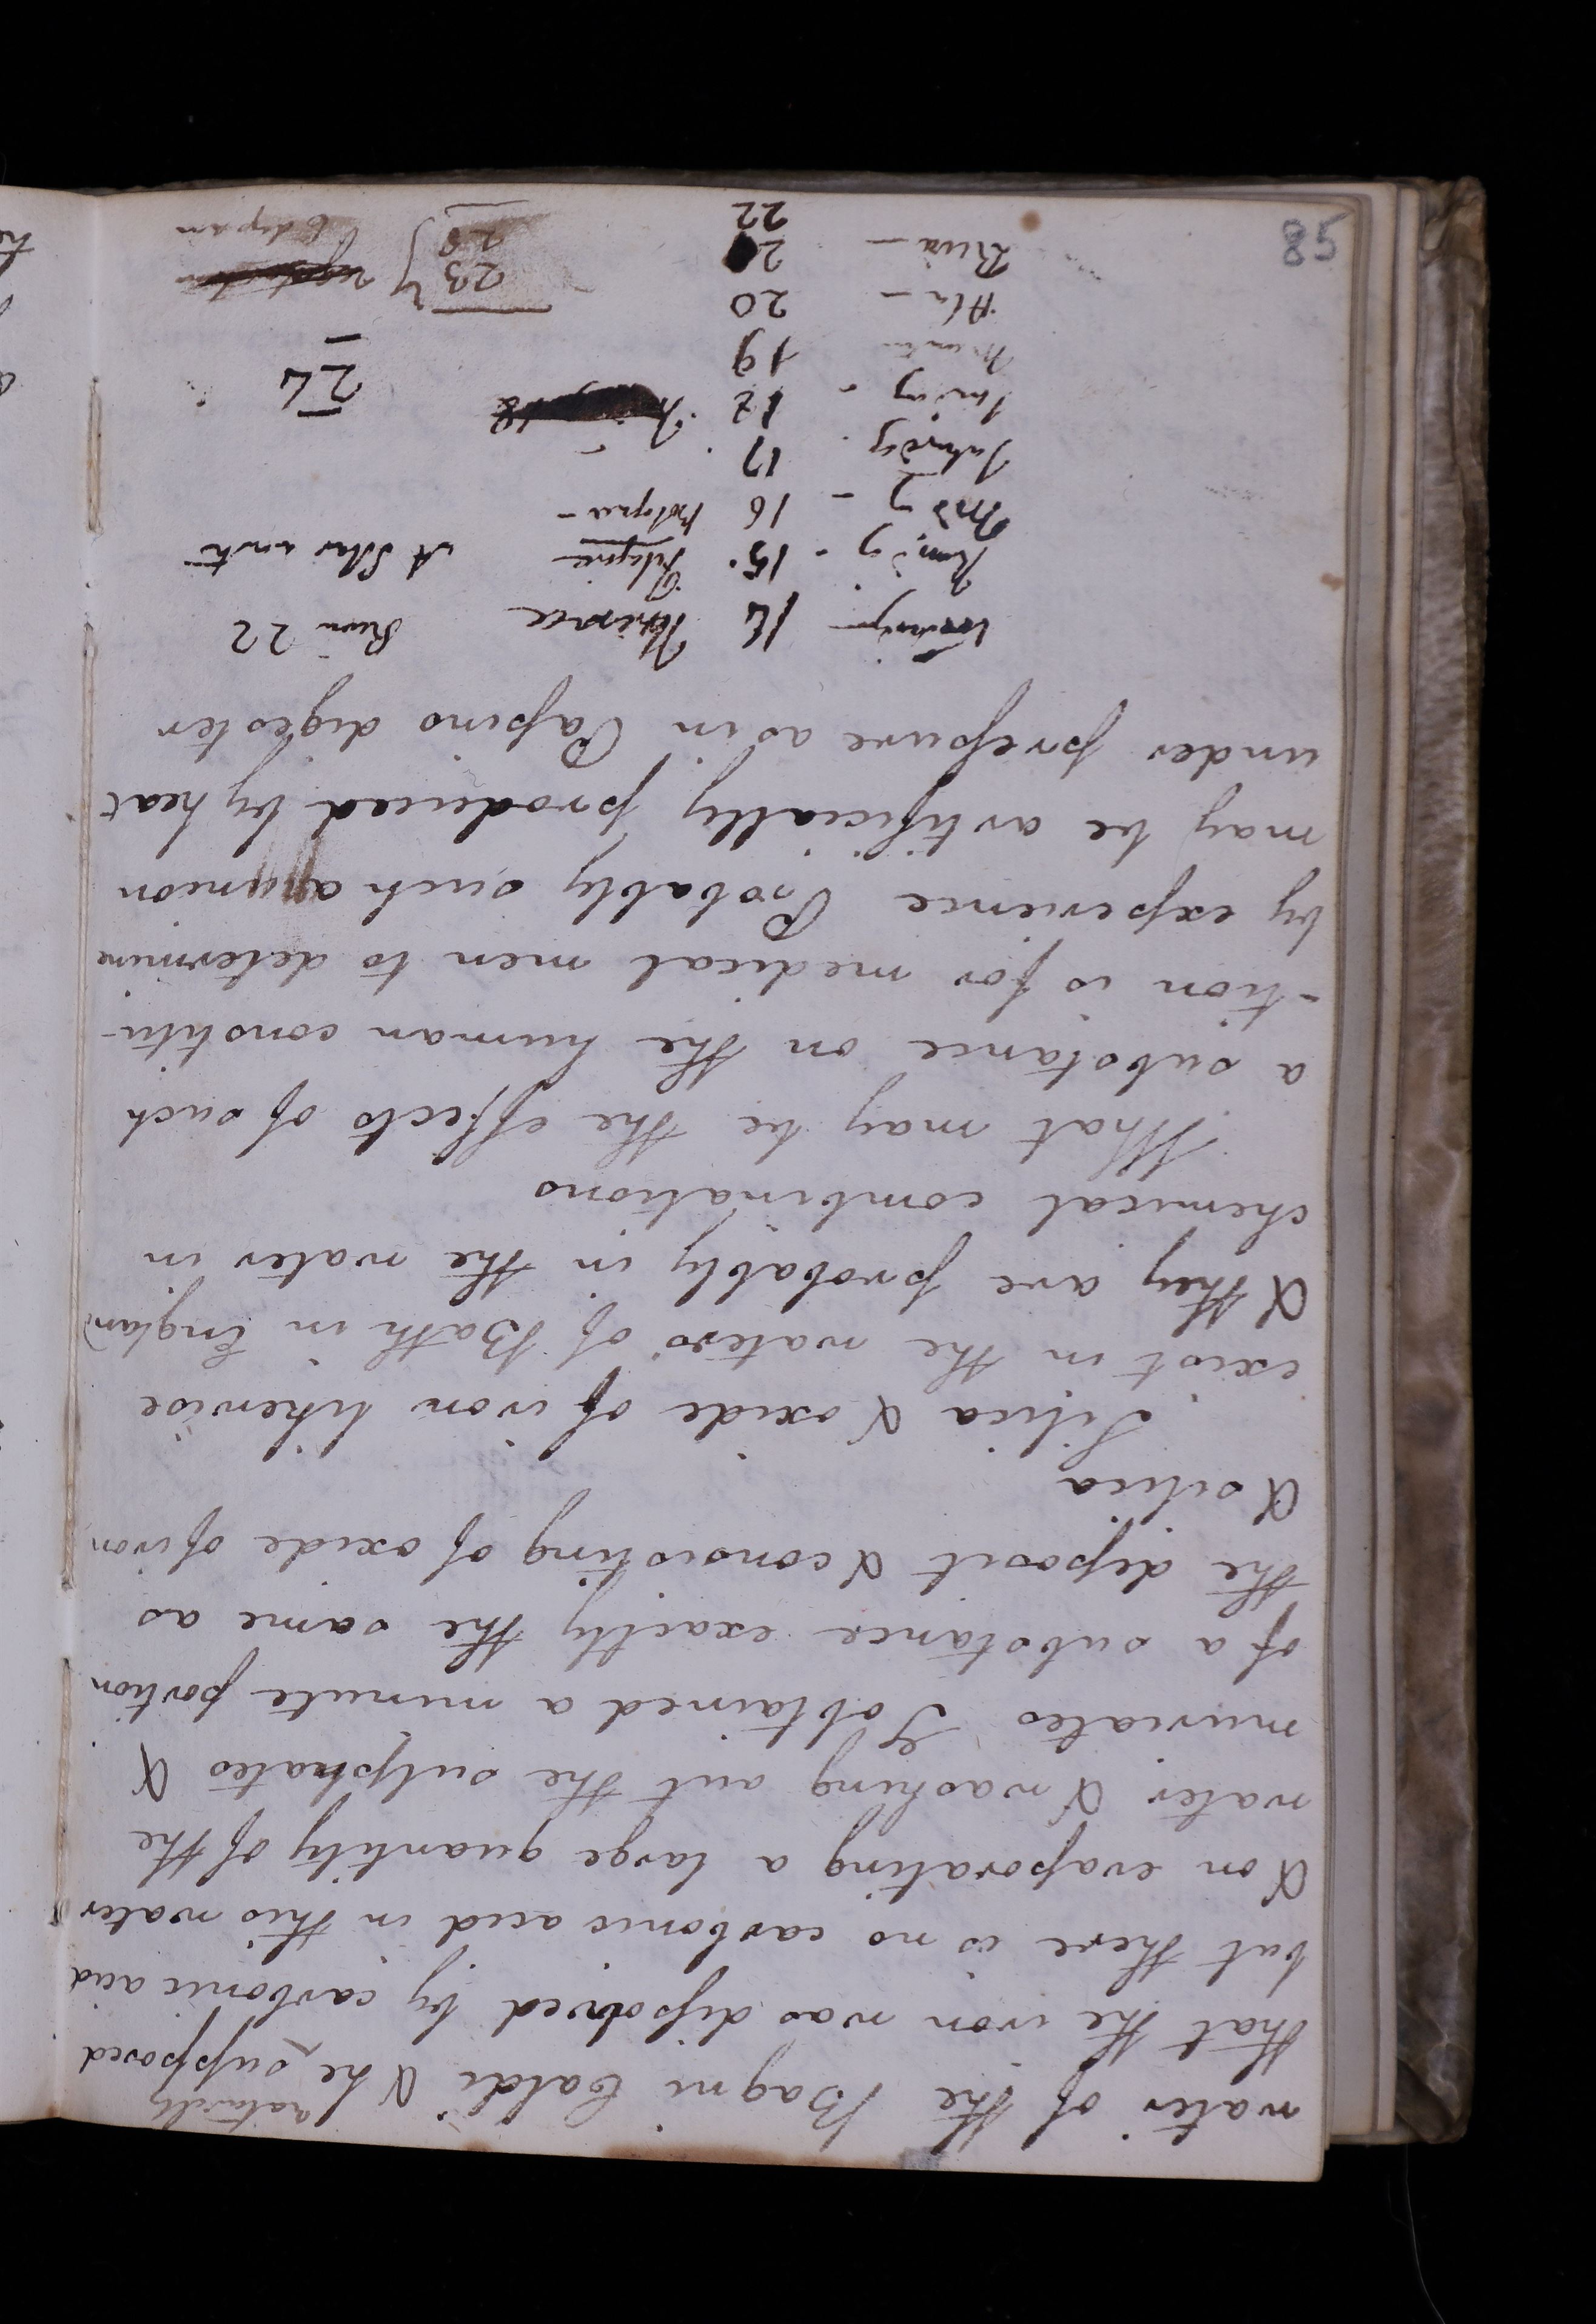 water of the Bagni Caldi & he naturally supposed
that the iron was dissolved by carbonic acid
but there is no carbonic acid in this water
& on evaporating a large quantity of the
water & washing out the sulphates &
muriates I obtained a minute portion
of a substance exactly the same as
the deposit & consisting of oxide of iron
& silica
Silica & oxide of iron likewise
exist in the waters of Bath in England
& they are probably in the water in
chemical combinations
What may be the effects of such
a substance on the human constitu-
-tion is for medical men to determine
by experience Probably such
may be artificially produced by heat
under pressure as in Papins digester
14 22
15
16 Bologna -
17
18
19
20
22
24
23
85